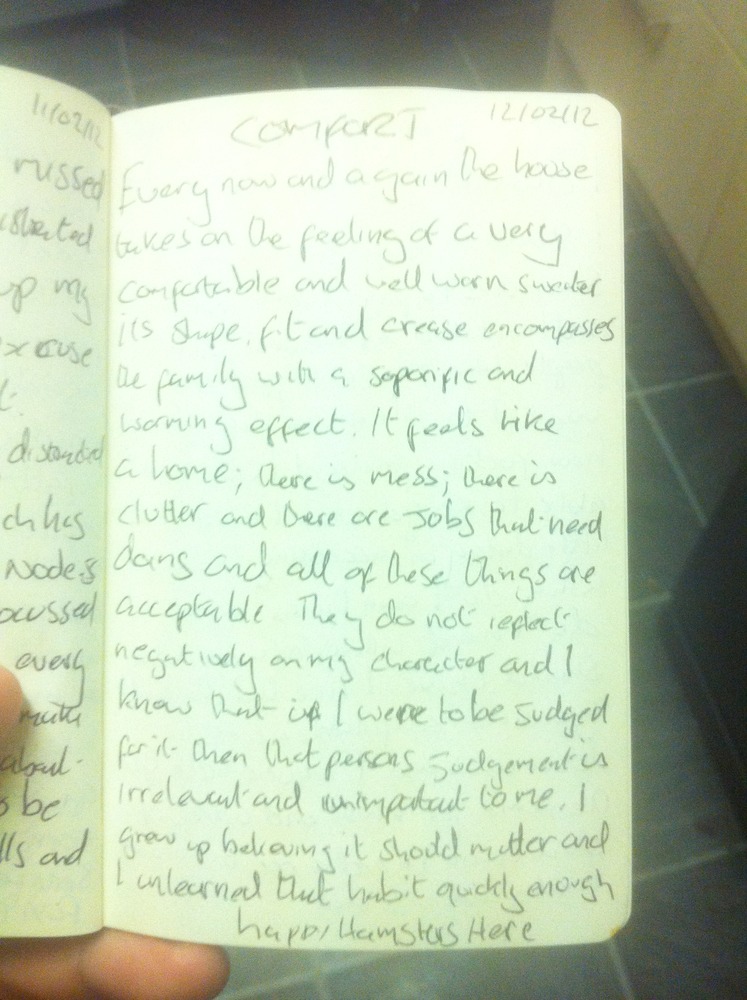 11/02/12
russed
up my
excuse
ch has
Nodes
ocussed
every
about
o be
lls and
COMFORT
12/02/12
Every now and again the house
takes on the feeling of a very
comfortable and well worn sweater
its shape, fit and crease encompasses
the family with a soporific and
warming effect. It feels like
a home; there is mess; there is
clutter and there are jobs that need
doing and all of these things are
acceptable They do not reflect
negatively on my character and I
know that if I were to be judged
for it then that persons judgement is
irrelevant and unimportant to me. I
grew up believing it should matter and
I unlearned that habit quickly enough
happy Hamsters Here